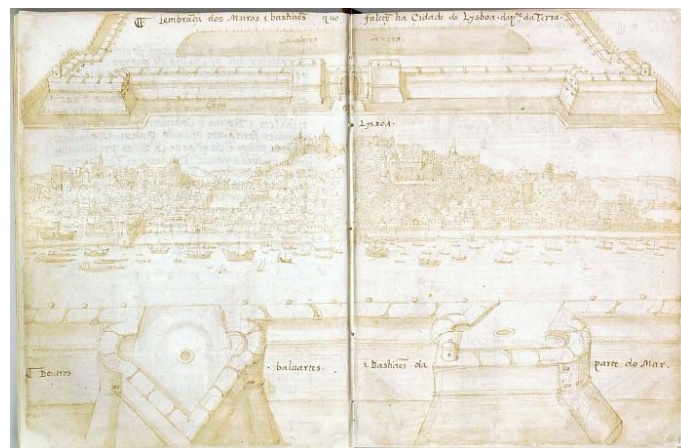 lembrãça dos Muros e bastiães que faleçẽ ha Cidade de Lysboa. da pte da Terra.
Cavaleiro de terra
Cava
LYSBOA.
Doutros baluartes. e Bastiães da parte do Mar.